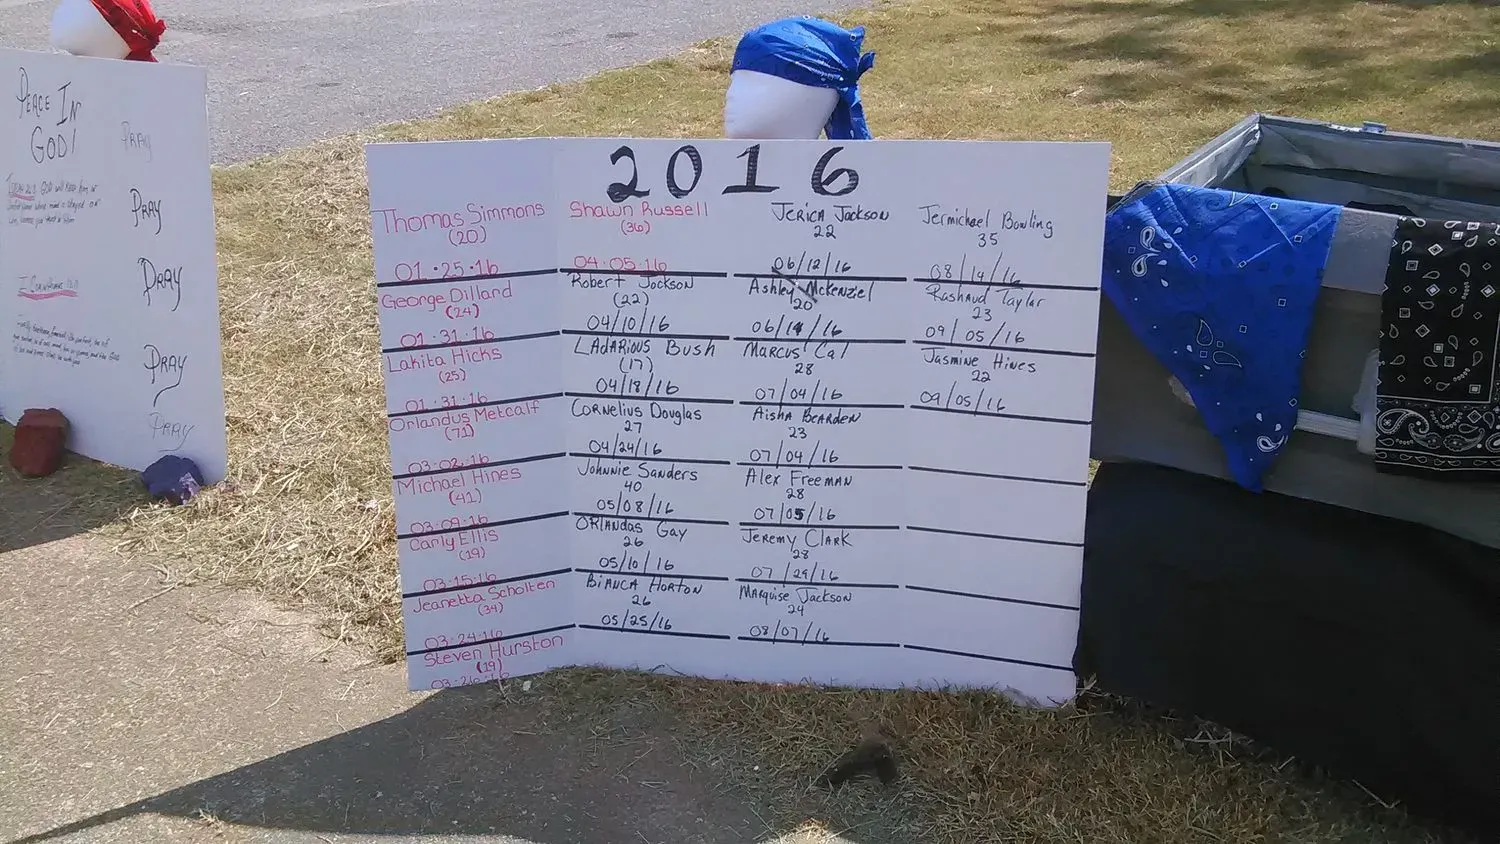 PEACE IN
GOD!
PRAY
PRAY
PRAY
PRAY
PRAY
GOD will keep him in
2016
Thomas Simmons
(20)
01.25.16
George Dillard
(24)
01.31.16
Lakita Hicks
(25)
01.31.16
Orlandus Metcalf
(71)
03.02.16
Michael Hines
(41)
03.09.16
Carly Ellis
(19)
03.15.16
Jeanetta Scholten
(34)
03.24.16
Steven Hurston
(19)
03.26.16
Shawn Russell
(36)
04.05.16
Robert Jackson
(22)
04/10/16
LADARIOUS Bush
(17)
04/18/16
Cornelius Douglas
27
04/24/16
Johnnie Sanders
40
05/08/16
ORlandas Gay
26
05/10/16
Bianca Horton
26
05/25/16
Jerica Jackson
22
06/12/16
Ashley McKenziel
20
06/14/16
Marcus Cal
28
07/04/16
Aisha Bearden
23
07/04/16
Alex Freeman
28
07/05/16
Jeremy Clark
28
07/29/16
Marquise Jackson
24
08/07/16
Jermichael Bowling
35
08/14/16
Rashaud Taylor
23
09/05/16
Jasmine Hines
22
09/05/16